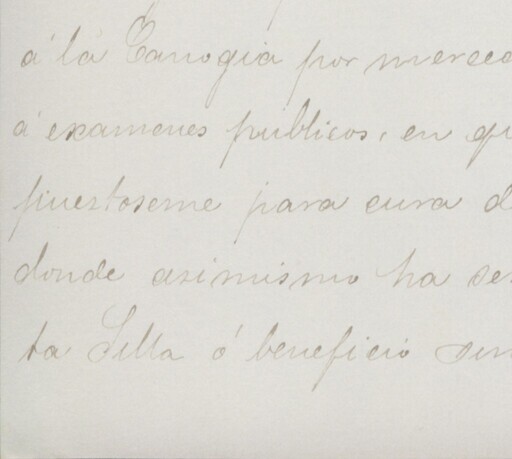 á la Canogia por merece
á examenes publicos, en qu
puestoseme para cura d
donde asimismo ha se
ta Silla ó beneficio sim